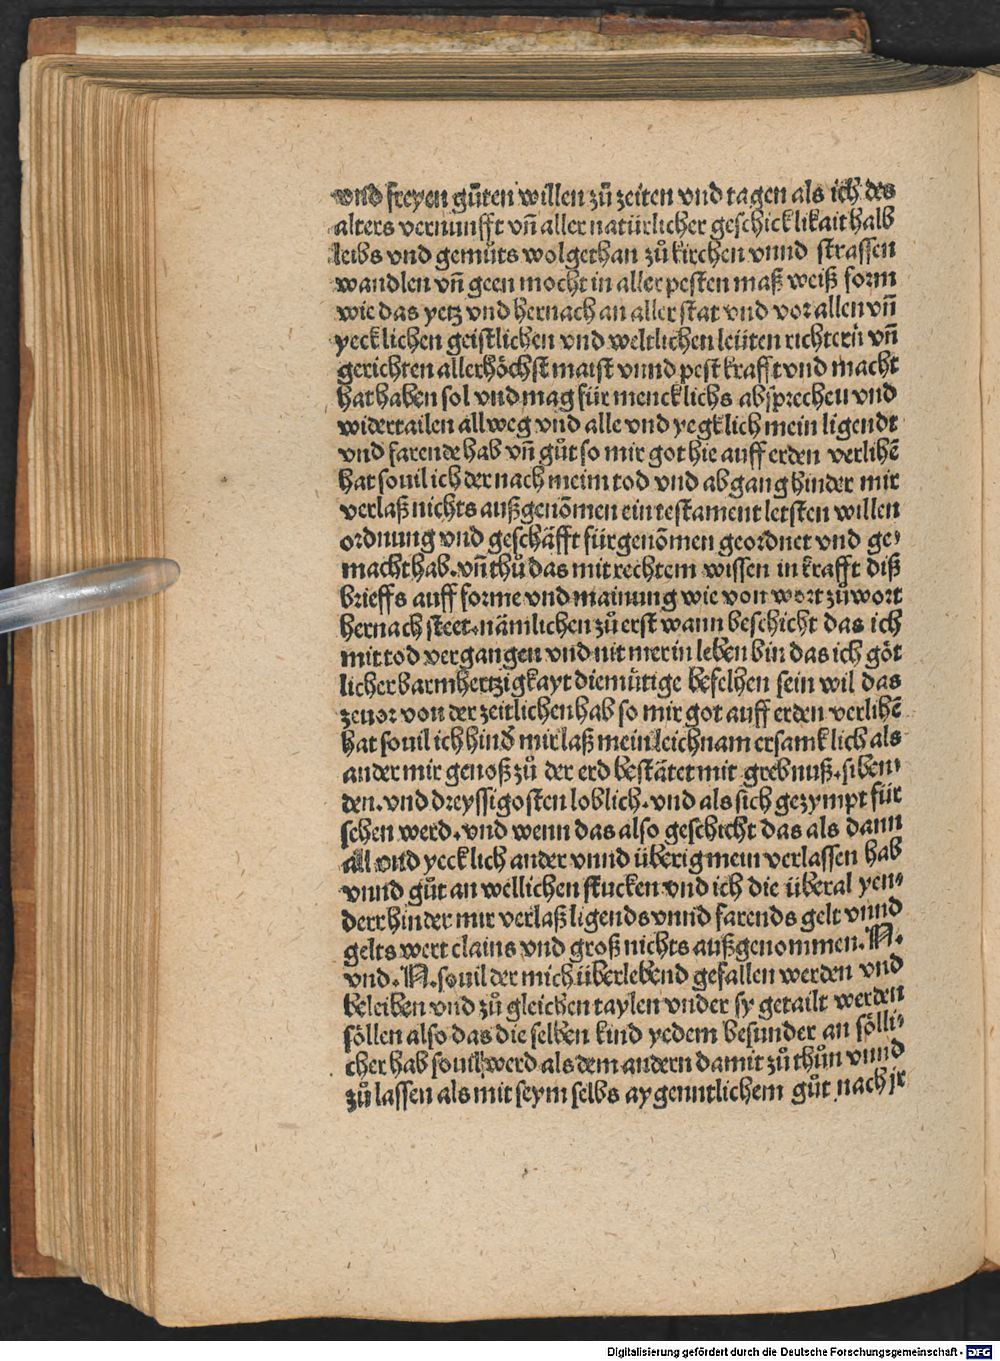 vnd freyen gůten willen zů zeiten vnd tagen als ich des
alters vernunfft vn̄ aller natürlicher geschicklikait halb
leibs vnd gemůts wolgethan zů kirchen vnnd strassen
wandlen vn̄ geen mocht in aller pesten maß weiß form
wie das yetz vnd hernach an aller stat vnd vor allen vn̄
yecklichen geistlichen vnd weltlichen leüten richtern vn̄
gerichten allerhöchst maist vnnd pest krafft vnd macht
hat haben sol vnd mag für mencklichs absprechen vnd
widertailen allweg vnd alle vnd yegklich mein ligendt
vnd farende hab vn̄ gůt so mir got hie auff erden verlihē
hat souil ich der nach meim tod vnd abgang hinder mir
verlaß nichts außgenōmen ein testament letsten willen
ordnung vnd geschäfft fürgenōmen geordnet vnd ge⸗
macht hab. vn̄ thů das mit rechtem wissen in krafft diß
brieffs auff forme vnd mainung wie von wort zů wort
hernach steet. nämlichen zů erst wann beschicht das ich
mit tod vergangen vnd nit mer in leben bin das ich göt
licher barmhertzigkayt diemütige befelhen sein wil das
zeuor von der zeitlichen hab so mir got auff erden verlihē
hat souil ich hind̄ mir laß mein leichnam ersamklich als
ander mir genoß zů der erd bestätet mit grebnuß. siben⸗
den. vnd dreyssigosten loblich. vnd als sich gezympt für
sehen werd. vnd wenn das also geschicht das als dann
all vnd yecklich ander vnnd überig mein verlassen hab
vnnd gůt an wellichen stucken vnd ich die überal yen⸗
dert hinder mir verlaß ligends vnnd farends gelt vnnd
gelts wert clains vnd groß nichts außgenommen. N.
vnd. N. souil der mich überlebend gefallen werden vnd
beleiben vnd zů gleichen taylen vnder sy getailt werden
söllen also das die selben kind yedem besunder an sölli⸗
cher hab souil werd als dem andern damit zů thůn vnnd
zů lassen als mit seym selbs aygenntlichem gůt nach jr
Digitalisierung gefördert durch die Deutsche Forschungsgemeinschaft - DFG